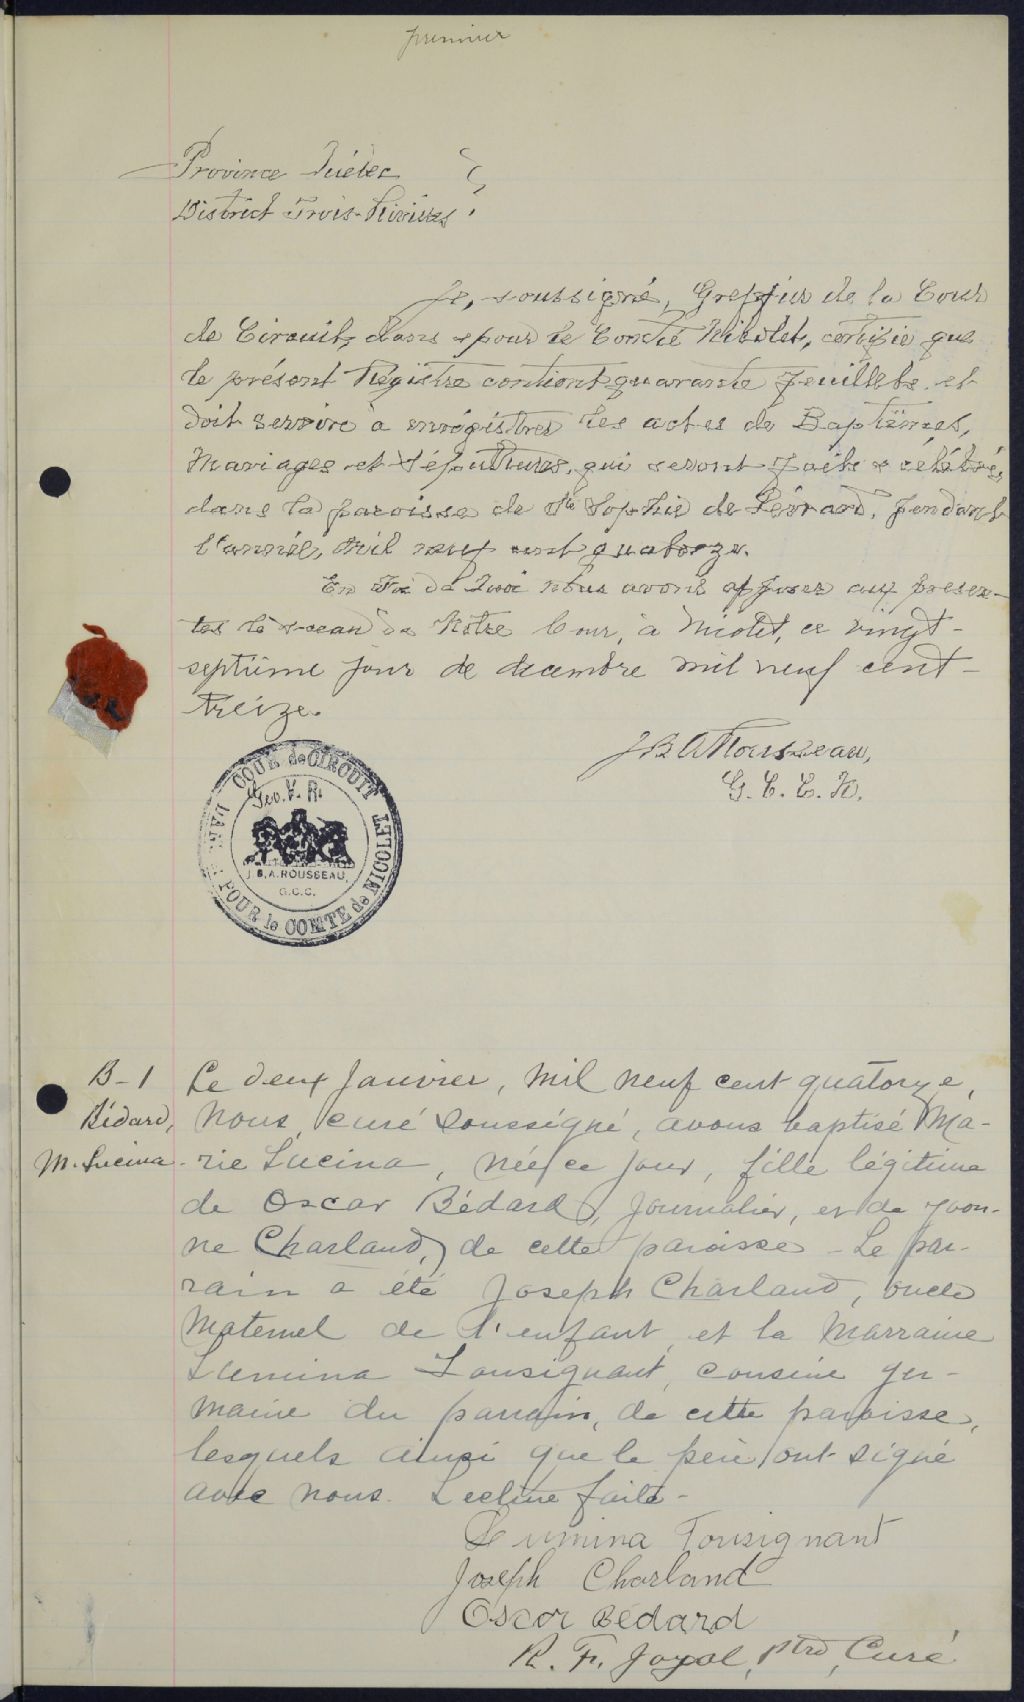 premier
Province Québec
District Trois-Rivières
Je, soussigné, Greffier de la Cour
de Circuit, dans & pour le Comté Nicolet, certifie que
le présent Régistre contient quarante feuillets et
doit servire à enrégistrer les actes de Baptêmes,
Mariages et Sépultures, qui seront faits & célébrés
dans la paroisse de Ste Sophie de Lévrard, pendant
l'année, Mil neuf cent quatorze.
En Foi de Quoi nous avons apposer aux présen-
tes le sceau de Notre Cour, à Nicolet, ce vingt-
septième jour de décembre mil neuf cent-
treize.
J B A Rousseau,
G. C. C. N.
COUR de CIRCUIT
DANS & POUR le COMTE de NICOLET
Geo. V. R.
J B, A. ROUSSEAU,
G.C.C.
B-1
Bédard,
M. Lucina
Le deux Janvier, mil neuf cent quatorze,
Nous, curé soussigné, avons baptisé Ma-
rie Lucina, née ce jour, fille légitime
de Oscar Bédard, journalier, et de Yvon-
ne Charland, de cette paroisse - Le par-
rain a été Joseph Charland, oncle
Maternel de l'enfant, et la Marraine
Lumina Tousignant, cousine ger-
maine du parrain, de cette paroisse,
lesquels ainsi que le père ont signé
avec nous. Lecture faite -
Lumina Tousignant
Joseph Charland
Oscar Bédard
R. F. Joyal, Ptre, Curé